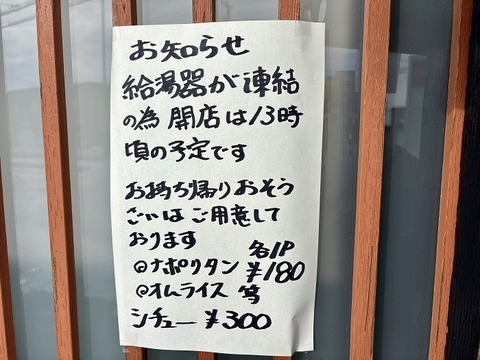 お知らせ
給湯器が凍結
の為 開店は13時
頃の予定です
お持ち帰りおそう
ごいはご用意して
おります
各1P
@ナポリタン ¥180
@オムライス 等
シチュー ¥300